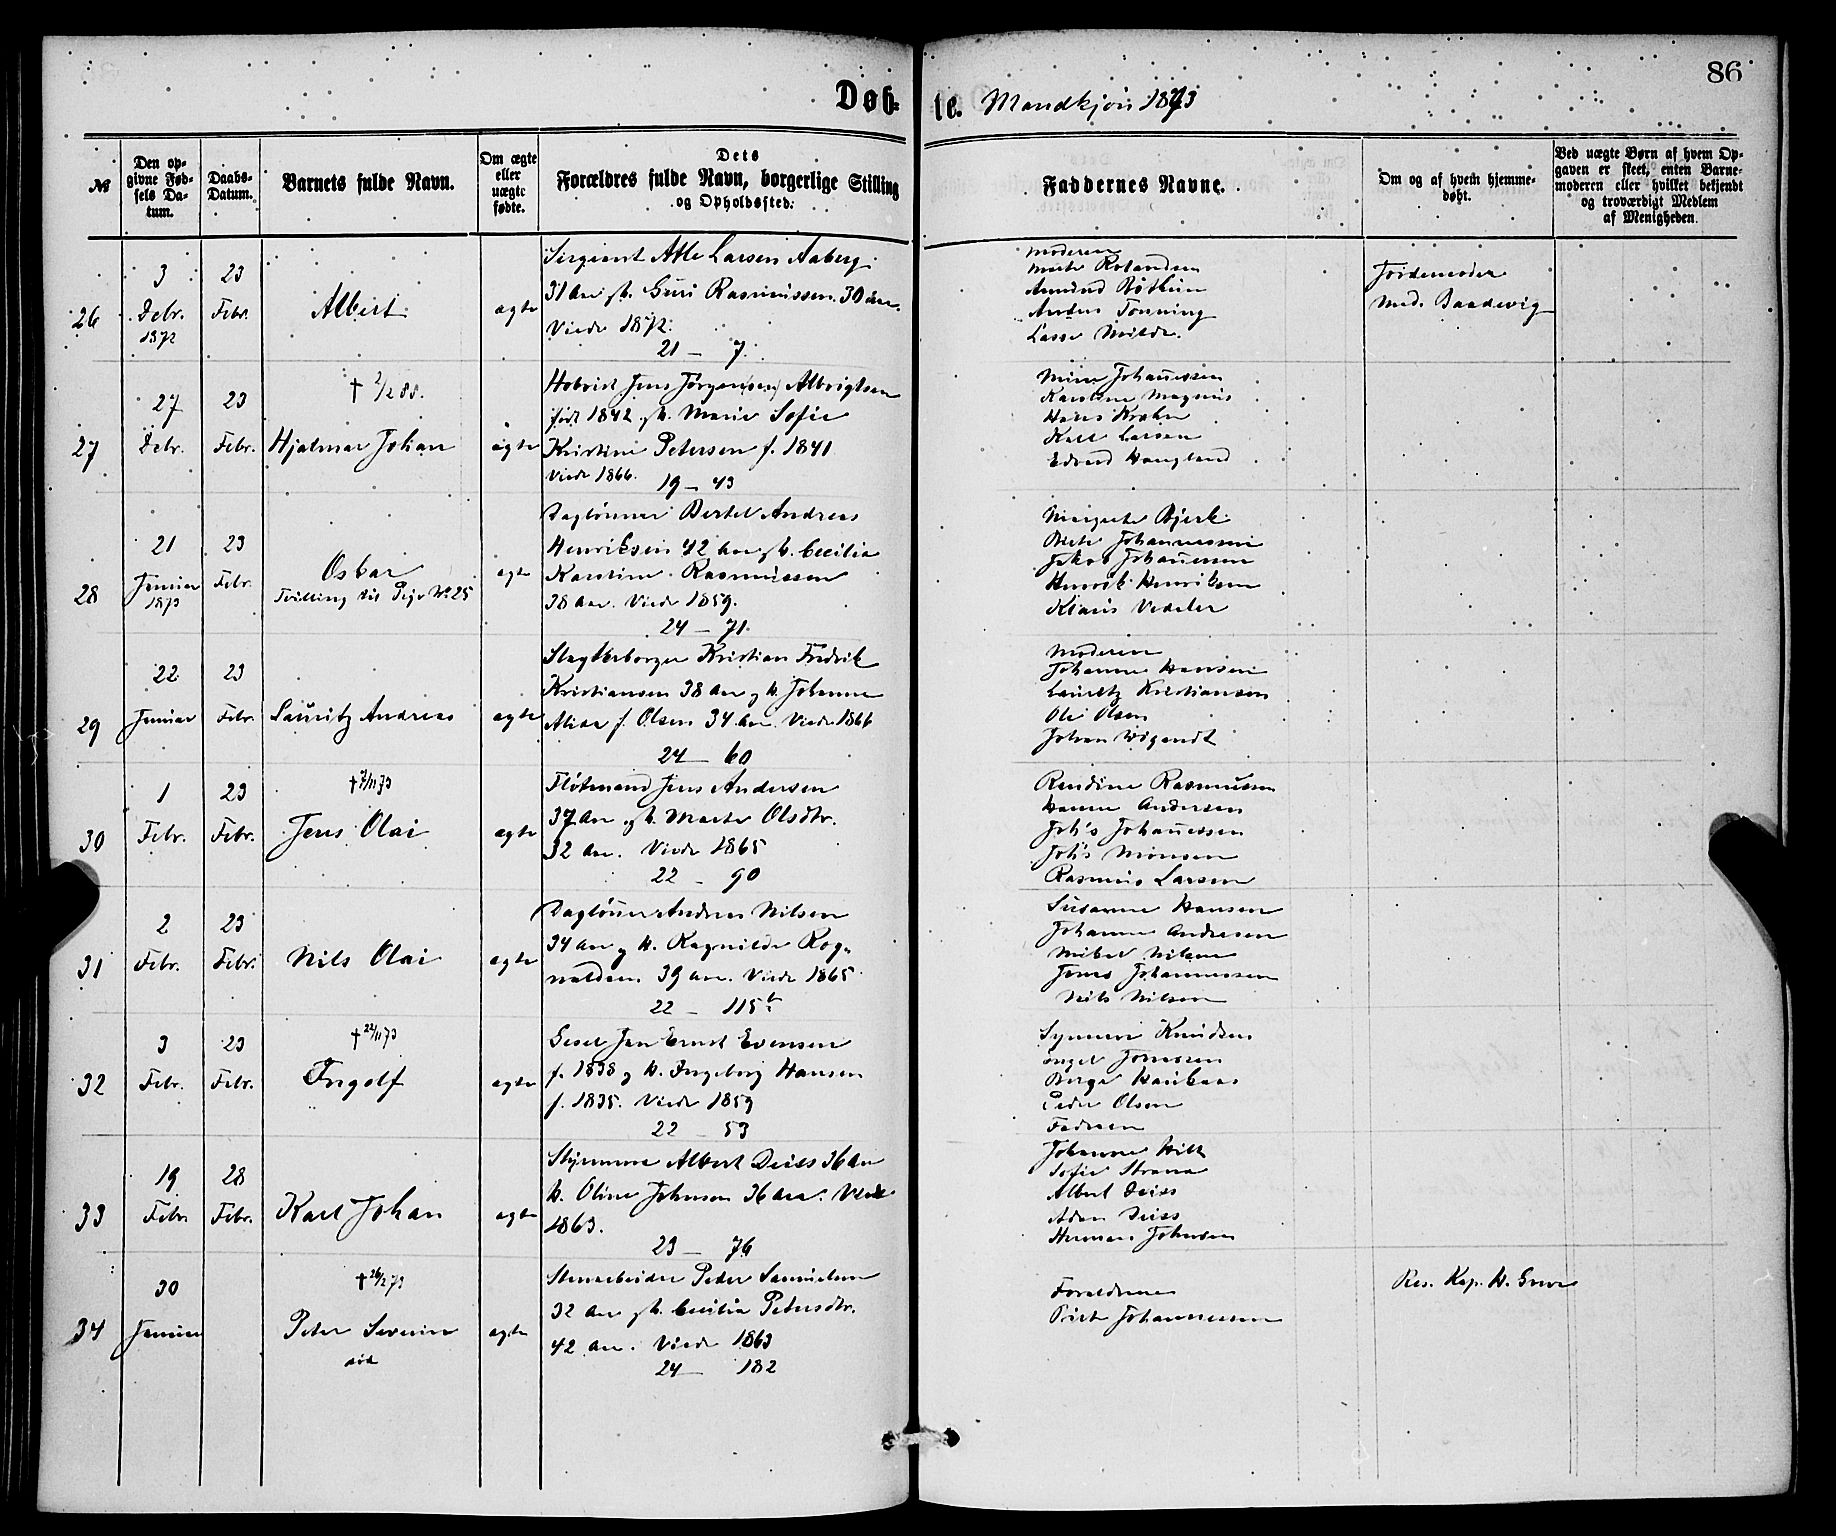 86
Døb-te. Mandkjøn 1873
№
Den op-
givne Fød-
sels Da-
tum.
Daabs-
Datum.
Barnets fulde Navn.
Om ægte
eller
uægte
fødte.
Dets
Forældres fulde Navn, borgerlige Stilling
og Opholdssted.
Faddernes Navne.
Om og af hvem hjemme-
døbt.
Ved uægte Børn af hvem Op-
gaven er skeet, enten Barne-
moderen eller hvilket bekjendt
og troværdigt Medlem
af Menigheden.
26
3
Debr.
1872
23
Febr.
Albert
ægte
Sergeant Atle Larsen Aaberg
31 Aar g H. Guri Rasmussen 30 aar.
Viede 1872.
21 - 7.
Moderen
Marte Rolandsen
Amund Røtheim
Anders Tonning
Lasse Milde.
Jordemoder
Mad. Baadevig
27
27
Debr.
23
Febr.
† 2/2 88.
Hjalmar Johan
ægte
Jens Jørgen(sen) Albrigtsen
født 1842 g H. Marie Sofie
Kristine Petersen f. 1841
Viede 1866.
19 - 43
Mina Johannessen
Karoline Magnus
Hans Krohn
Karl Larsen
Edvard Haugland
28
21
Januar
1873
23
Febr.
Oskar
Tvilling til Pige No 25
ægte
Daglønner Bertel Andreas
Henriksen 42 Aar g H. Cecilia
Karoline Rasmussen
38 Aar. Viede 1859.
24 - 71.
Margrete Bjerk
Birte Johannessen
Jakob Johannessen
Henrik Henriksen
Klaus Vedeler
29
22
Januar
23
Febr.
Lauritz Andreas
ægte
Slagterborger Kristian Fredrik
Kristiansen 38 Aar g H. Johanne
Alida f. Olsen 34 Aar. Viede 1866
24 - 60
Moderen
Johanne Hansen
Lauritz Kristiansen
Ole Olsen
Johan Wigandt
30
1
Febr.
23
Febr.
† 7/11 73
Jens Olai
ægte
Fløtmand Jens Andersen
37 Aar g H. Marte Olsdtr.
32 Aar. Viede 1865
22 - 90
Randine Rasmussen
Hanne Andersen
Joh's Johannessen
Joh's Monsen
Rasmus Larsen
31
2
Febr.
23
Febr.
Nils Olai
ægte
Dagløner Andreas Nilsen
34 Aar g H. Ragnilde Rog-
naldsen 39 Aar. Viede 1865
22 - 115 b
Susanne Hansen
Johanne Andresen
Mikal Nilsen
Jones Johannessen
Nils Nilsen
32
3
Febr.
23
Febr.
† 22/11 73
Ingolf
ægte
Gesel Jan Ernst Evensen
f. 1838 g H. Ingeborg Hansen
f. 1835. Viede 1859
22 - 53
Synneve Knudsen
Engel Jonassen
Børge Haukaas
Peder Olsen
Faderen
33
19
Febr.
28
Febr.
Karl Johan
ægte
Styrmann Albert Deiss 36 Aar
H. Oline Johnson 36 Aar. Viede
1863.
23 - 76
Johanne Hill
Sofie Strand
Albert Deiss
Adam Deiss
Herman Johnsen
34
30
Januar
† 26/2 73
Peter Severin
ægte
Stenarbeider Peder Samuelsen
32 Aar g H. Cecilia Petersdtr.
42 Aar. Viede 1863
24 - 182
Forældrene
Birte Johannessen
Res. Kap. H. Greve